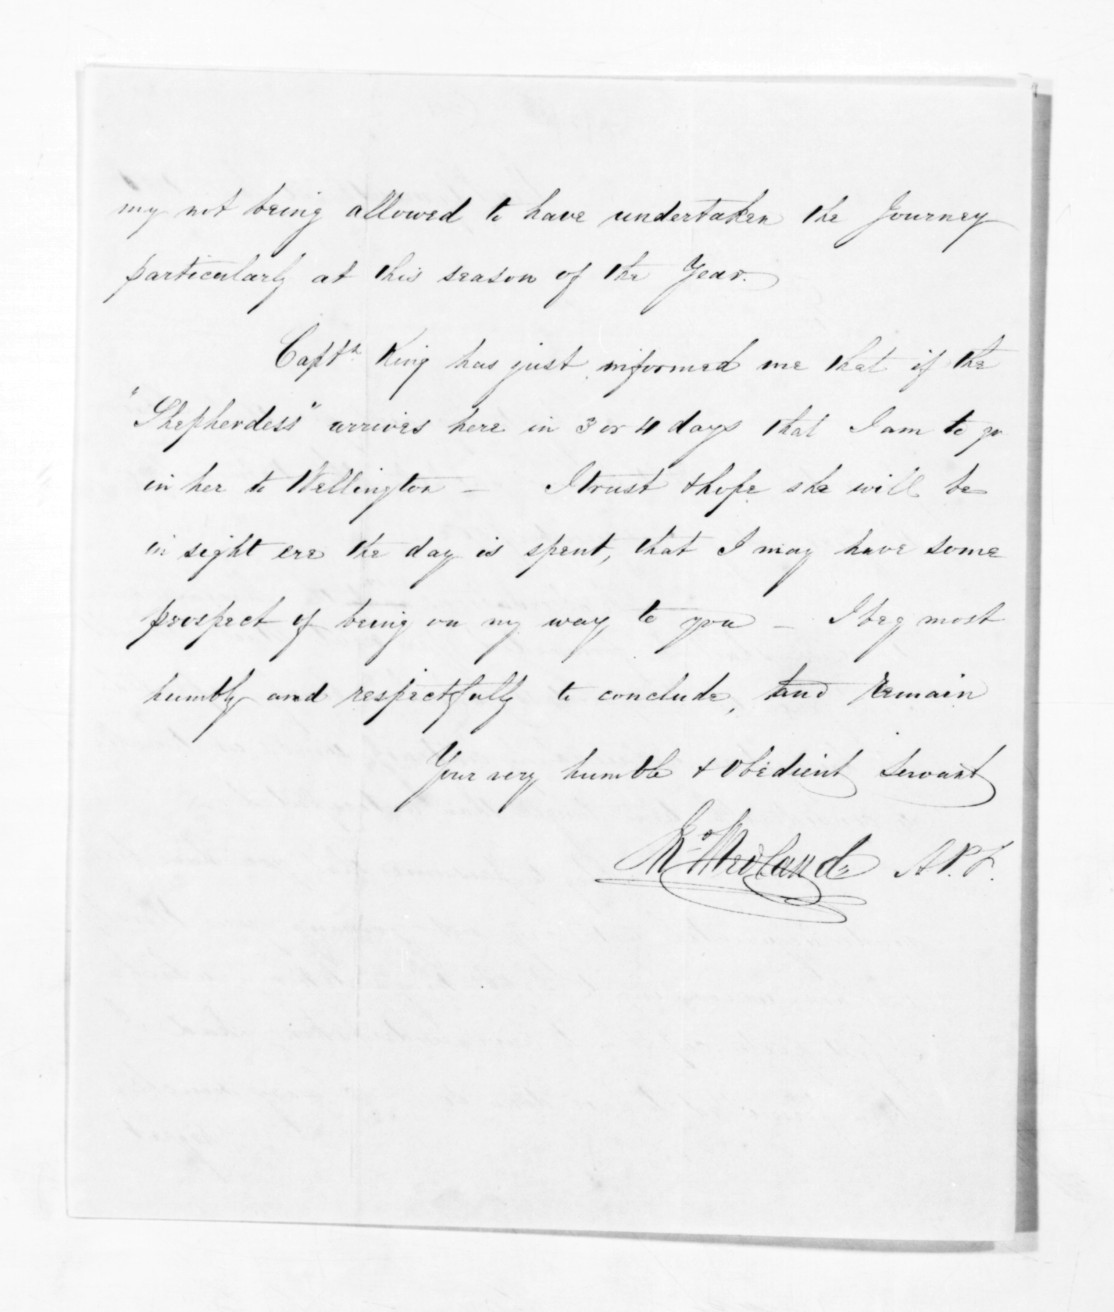 my not being allowed to have undertaken the Journey
particularly at this season of the Year.
Captn King has just informed me that if the
"Shepherdess" arrives here in 3 or 4 days that I am to go
in her to Wellington – I trust & hope she will be
in sight ere the day is spent, that I may have some
prospect of being on my way to you – I beg most
humbly and respectfully to conclude, and remain
Your very humble & Obedient Servant
A.P.F.